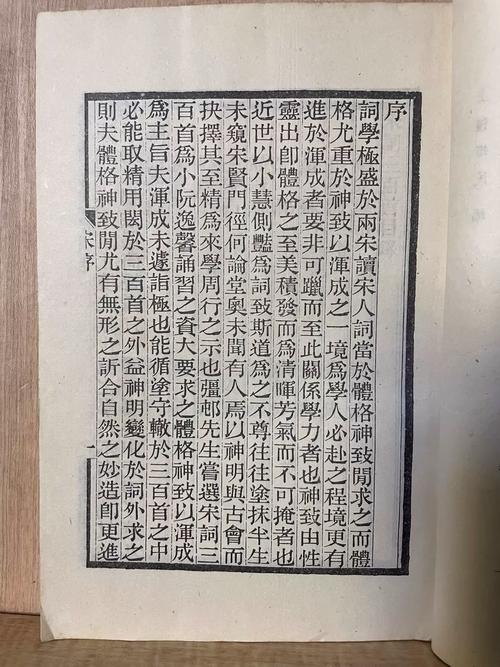 序
詞學極盛於兩宋讀宋人詞當於體格神致閒求之而體
格尤重於神致以渾成之一境爲學人必赴之程境更有
進於渾成者要非可躐而至此關係學力者也神致由性
靈出卽體格之至美積發而爲清暉芳氣而不可掩者也
近世以小慧側豔爲詞致斯道爲之不尊往往塗抹半生
未窺宋賢門徑何論堂奧未聞有人焉以神明與古會而
抉擇其至精爲來學周行之示也彊邨先生嘗選宋詞三
百首爲小阮逸馨誦習之資大要求之體格神致以渾成
爲主旨夫渾成未遽詣極也能循塗守轍於三百首之中
必能取精用閎於三百首之外益神明變化於詞外求之
則夫體格神致閒尤有無形之訢合自然之妙造卽更進
宋序
一